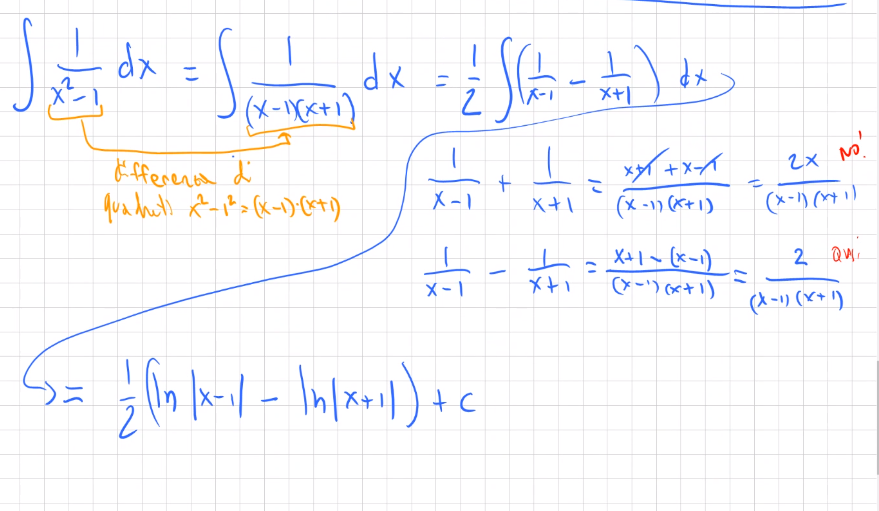 ∫ 1/(x²-1) dx = ∫ 1/((x-1)(x+1)) dx = 1/2 ∫ (1/(x-1) - 1/(x+1)) dx
differenza di
quadrati x²-1²=(x-1)·(x+1)
1/(x-1) + 1/(x+1) = (x+1+x-1)/((x-1)(x+1)) = 2x/((x-1)(x+1)) NO!
1/(x-1) - 1/(x+1) = (x+1-(x-1))/((x-1)(x+1)) = 2/((x-1)(x+1))
= 1/2 (ln|x-1| - ln|x+1|) + c